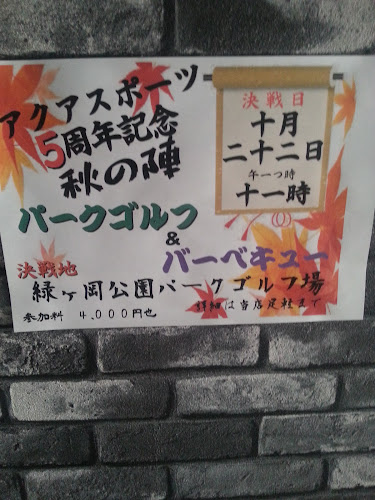 アクアスポーツ
5周年記念
秋の陣
パークゴルフ
&
バーベキュー
決戦日
十月
二十二日
午一つ時
十一時
決戦地
緑ヶ岡公園パークゴルフ場
参加料 4,000円也
詳細は当店足軽まで